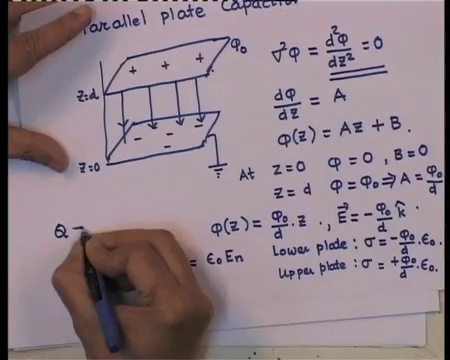 Parallel plate capacitor
φ₀
+ + +
z=d
- - -
- -
z=0
∇²φ = d²φ/dz² = 0
dφ/dz = A
φ(z) = Az + B.
At z=0 φ=0, B=0
z=d φ=φ₀ ⟹ A = φ₀/d
φ(z) = φ₀/d · z , E⃗ = -φ₀/d k̂
Q
= ε₀En
Lower plate : σ = -φ₀/d · ε₀.
Upper plate : σ = +φ₀/d · ε₀.